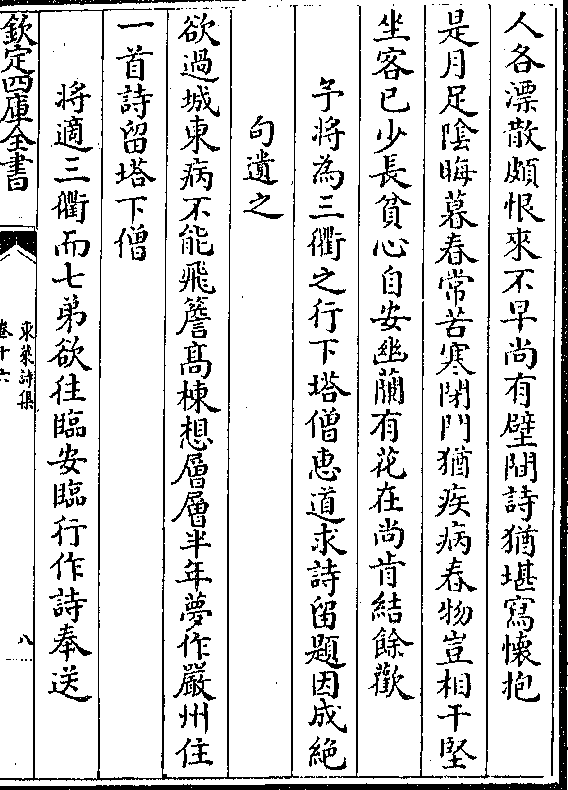 人各漂散頗恨來不早尚有壁間詩猶堪寫懷抱
是月足陰晦暮春常苦寒閉門猶疾病春物豈相干堅
坐客已少長貧心自安幽蘭有花在尚肯結餘歡
予將為三衢之行下塔僧惠道求詩留題因成絶
句遺之
欲過城東病不能飛簷髙棟想層層半年夢作嚴州住
一首詩留塔下僧
將適三衢而七弟欲往臨安臨行作詩奉送
欽定四庫全書
東萊詩集
卷十六
八